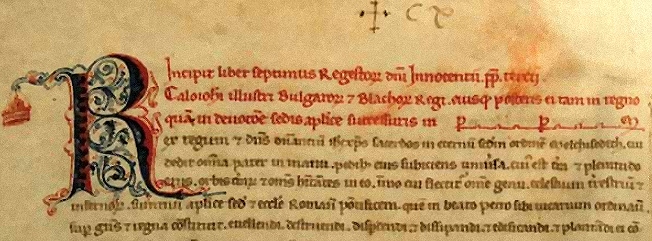 CX
Incipit liber septimus Regestor dni Innocentii. pp. tercii.
Caloiohi illustri Bulgaror ⁊ Blachor Regi. eiusq posteris ei tam in regno
qua in devotone sedis aplice successuris in P P M
Rex regum ⁊ dns dominantium sacerdos in eternu sedm ordine Melchisedech, cui
dedit omia pater in manu, pedib eius subiciens universa, cui est tra ⁊ plenitudo
eius, orbis ⁊ omes in eo, immo cui flectit ome genu, celestium terestriu ⁊
infernor, summu aplice sed ⁊ eccle Romane pontifice, que in beato petro sibi vicarium ordinavit,
sup gntes ⁊ regna constituit, evellendi, destruendi, dispdendi ⁊ dissipandi, ⁊ edificandi, ⁊ plantandi ei